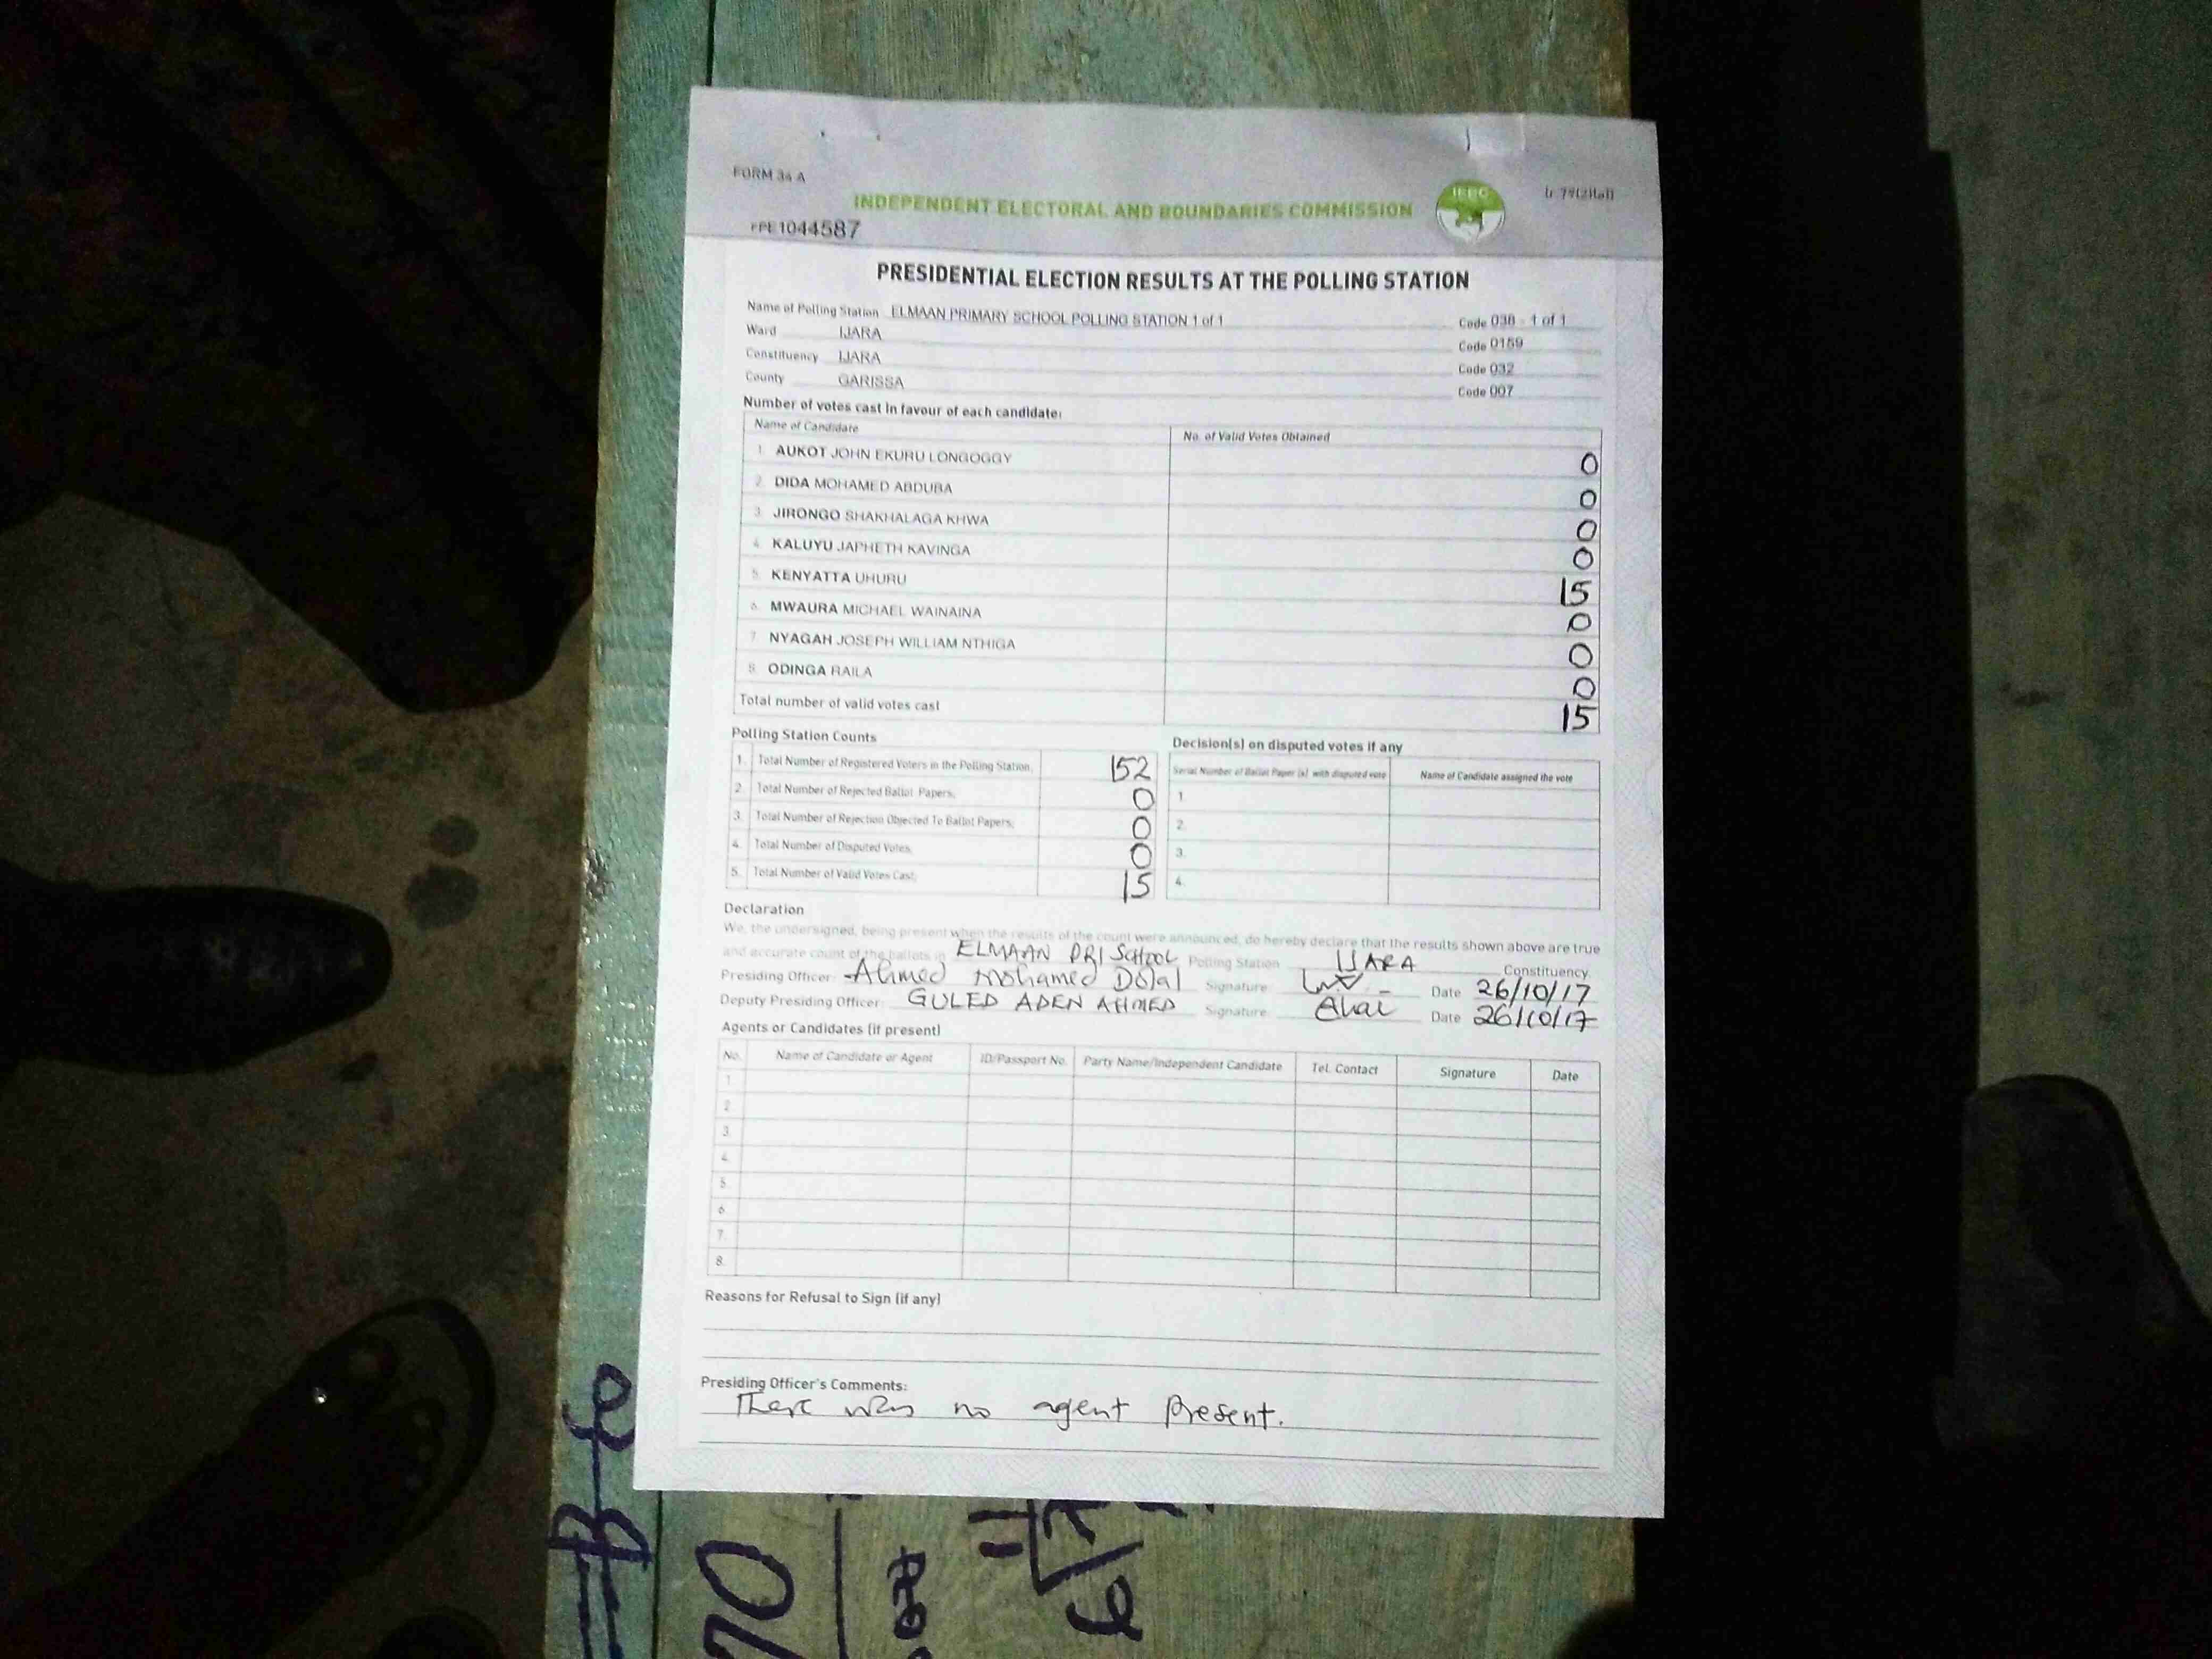 FORM 34 A
INDEPENDENT ELECTORAL AND BOUNDARIES COMMISSION
IEBC
1044587
PRESIDENTIAL ELECTION RESULTS AT THE POLLING STATION
Name of Polling Station ELMAAN PRIMARY SCHOOL POLLING STATION 1 of 1 Code 038 - 1 of 1
Ward IJARA Code 0159
Constituency IJARA Code 032
County GARISSA Code 007
Number of votes cast in favour of each candidate:
Name of Candidate No. of Valid Votes Obtained
1. AUKOT JOHN EKURU LONGOGGY 0
2. DIDA MOHAMED ABDUBA 0
3. JIRONGO SHAKHALAGA KHWA 0
4. KALUYU JAPHETH KAVINGA 0
5. KENYATTA UHURU 15
6. MWAURA MICHAEL WAINAINA 0
7. NYAGAH JOSEPH WILLIAM NTHIGA 0
8. ODINGA RAILA 0
Total number of valid votes cast 15
Polling Station Counts
1. Total Number of Registered Voters in the Polling Station; 152
2. Total Number of Rejected Ballot Papers; 0
3. Total Number of Rejection Objected To Ballot Papers; 0
4. Total Number of Disputed Votes; 0
5. Total Number of Valid Votes Cast; 15
Decision(s) on disputed votes if any
Serial Number of Ballot Paper (s) with disputed vote Name of Candidate assigned the vote
1.
2.
3.
4.
Declaration
We, the undersigned, being present when the results of the count were announced, do hereby declare that the results shown above are true
and accurate count of the ballots in ELMAAN PRI SCHOOL Polling Station IJARA Constituency.
Presiding Officer: Ahmed Mohamed Dolal Signature: Date 26/10/17
Deputy Presiding Officer: GULED ADEN AHMED Signature: Date 26/10/17
Agents or Candidates (if present)
No. Name of Candidate or Agent ID/Passport No. Party Name/Independent Candidate Tel. Contact Signature Date
1.
2.
3.
4.
5.
6.
7.
8.
Reasons for Refusal to Sign (if any)
Presiding Officer's Comments:
There was no agent present.